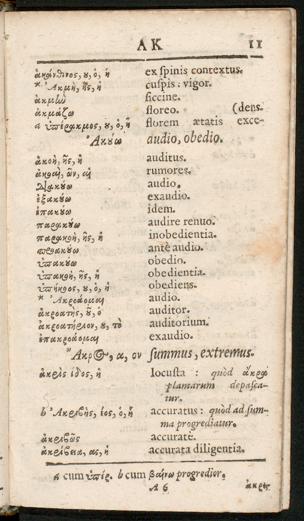 AK 11
ἀκάνθινος, ου, ὁ, ἡ ex spinis contextus.
* Ἀκμή, ῆς, ἡ cuspis: vigor.
ἀκμὼ siccine.
ἀκμάζω floreo. (dens.
a ὑπέρακμος, ου, ὁ, ἡ florem ætatis exce-
Ἀκούω audio, obedio.
ἀκοή, ῆς, ἡ auditus.
ἀκοαὶ, ῶν, αἱ rumores.
διακούω audio.
εἰσακούω exaudio.
ἐπακούω idem.
παρακούω audire renuo.
παρακοή, ῆς, ἡ inobedientia.
προακούω antè audio.
ὑπακούω obedio.
ὑπακοή, ῆς, ἡ obedientia.
ὑπήκοος, ου, ὁ, ἡ obediens.
* Ἀκροάομαι audio.
ἀκροατής, οῦ, ὁ auditor.
ἀκροατήριον, ου, τὸ auditorium.
ἐπακροάομαι exaudio.
Ἄκρος, α, ον summus, extremus.
ἀκρὶς ίδος, ἡ locusta: quòd ἄκρα
plantarum depasca-
tur.
b Ἀκριβής, έος, ὁ, ἡ accuratus: quòd ad sum-
ma progrediatur.
ἀκριβῶς accuratè.
ἀκρίβεια, ας, ἡ accurata diligentia.
a cum ὑπέρ. b cum βαίνω progredior.
A 6